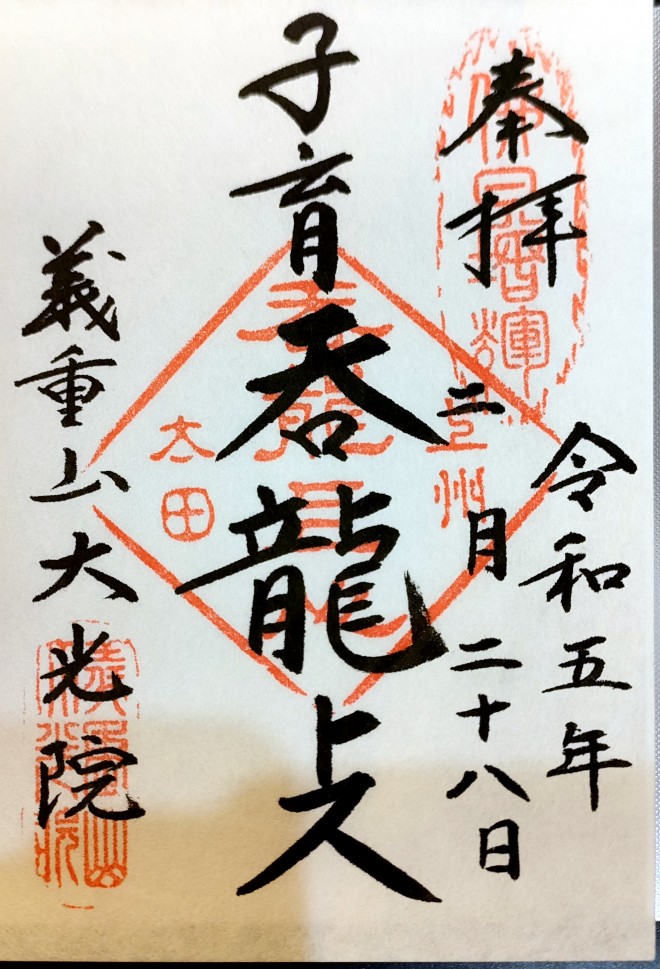 奉拝
佛日增輝
令和五年
二月二十八日
子育呑龍上人
上州
太田
義重山大光院